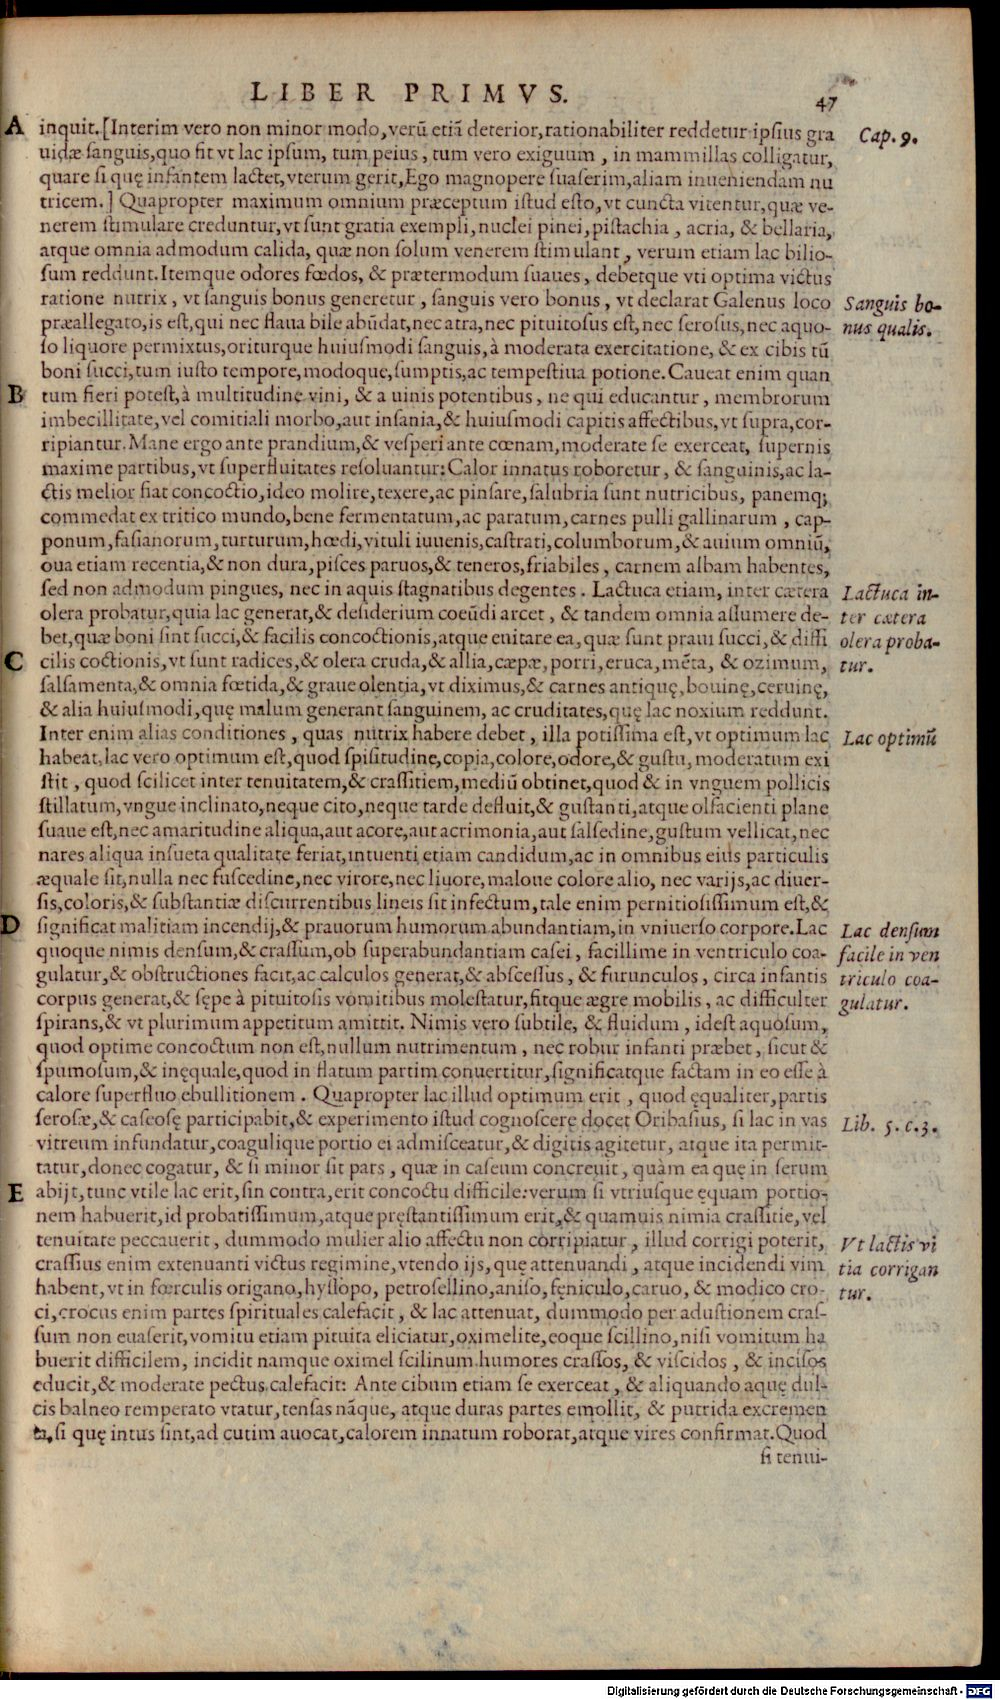 LIBER PRIMVS.
47
A inquit.[Interim vero non minor modo,verũ etiã deterior,rationabiliter reddetur ipsius gra
Cap. 9.
uidæ sanguis,quo fit vt lac ipsum, tum peius, tum vero exiguum, in mammillas colligatur,
quare si quę infantem lactet,vterum gerit,Ego magnopere suaserim,aliam inueniendam nu
tricem.] Quapropter maximum omnium præceptum istud esto,vt cuncta vitentur,quæ ve-
nerem stimulare creduntur,vt sunt gratia exempli,nuclei pinei,pistachia, acria, & bellaria,
atque omnia admodum calida, quæ non solum venerem stimulant, verum etiam lac bilio-
sum reddunt.Itemque odores fœdos, & prætermodum suaues, debetque vti optima victus
ratione nutrix, vt sanguis bonus generetur, sanguis vero bonus, vt declarat Galenus loco
Sanguis bo-
præallegato,is est,qui nec flaua bile abũdat,nec atra,nec pituitosus est,nec serosus,nec aquo-
nus qualis.
so liquore permixtus,oriturque huiusmodi sanguis,à moderata exercitatione, & ex cibis tũ
boni succi,tum iusto tempore,modoque,sumptis,ac tempestiua potione.Caueat enim quan
B tum fieri potest,à multitudine vini, & a uinis potentibus, ne qui educantur, membrorum
imbecillitate,vel comitiali morbo,aut insania,& huiusmodi capitis affectibus,vt supra,cor-
ripiantur.Mane ergo ante prandium,& vesperi ante cœnam,moderate se exerceat, supernis
maxime partibus,vt superfluitates resoluantur:Calor innatus roboretur, & sanguinis,ac la-
ctis melior fiat concoctio,ideo molire,texere,ac pinsare,salubria sunt nutricibus, panemq;
commedat ex tritico mundo,bene fermentatum,ac paratum,carnes pulli gallinarum, cap-
ponum,fasianorum,turturum,hœdi,vituli iuuenis,castrati,columborum,& auium omniũ,
oua etiam recentia,& non dura,pisces paruos,& teneros,friabiles, carnem albam habentes,
sed non admodum pingues, nec in aquis stagnatibus degentes. Lactuca etiam, inter cætera
Lactuca in-
olera probatur,quia lac generat,& desiderium coeũdi arcet, & tandem omnia assumere de-
ter cætera
bet,quæ boni sint succi,& facilis concoctionis,atque euitare ea,quæ sunt praui succi,& diffi
olera proba-
C cilis coctionis,vt sunt radices,& olera cruda,& allia,cæpæ,porri,eruca,mẽta, & ozimum,
tur.
salsamenta,& omnia fœtida,& graue olentia,vt diximus,& carnes antiquę,bouinę,ceruinę,
& alia huiusmodi,quę malum generant sanguinem, ac cruditates,quę lac noxium reddunt.
Inter enim alias conditiones, quas nutrix habere debet, illa potissima est,vt optimum lac
Lac optimũ
habeat,lac vero optimum est,quod spisitudine,copia,colore,odore,& gustu,moderatum exi
stit, quod scilicet inter tenuitatem,& crassitiem,mediũ obtinet,quod & in vnguem pollicis
stillatum,vngue inclinato,neque cito,neque tarde defluit,& gustanti,atque olfacienti plane
suaue est,nec amaritudine aliqua,aut acore,aut acrimonia,aut salsedine,gustum vellicat,nec
nares aliqua insueta qualitate feriat,intuenti etiam candidum,ac in omnibus eius particulis
æquale sit,nulla nec fuscedine,nec virore,nec liuore,maloue colore alio, nec varijs,ac diuer-
sis,coloris,& substantiæ discurrentibus lineis sit infectum,tale enim pernitiosissimum est,&
D significat malitiam incendij,& prauorum humorum abundantiam,in vniuerso corpore.Lac
Lac densum
quoque nimis densum,& crassum,ob superabundantiam casei, facillime in ventriculo coa-
facile in ven
gulatur,& obstructiones facit,ac calculos generat,& abscessus, & furunculos, circa infantis
triculo coa-
corpus generat,& sępe à pituitosis vomitibus molestatur,fitque ægre mobilis, ac difficulter
gulatur.
spirans,& vt plurimum appetitum amittit. Nimis vero subtile, & fluidum, idest aquosum,
quod optime concoctum non est,nullum nutrimentum, nec robur infanti præbet, sicut &
spumosum,& inęquale,quod in flatum partim conuertitur,significatque factam in eo esse à
calore superfluo ebullitionem. Quapropter lac illud optimum erit, quod ęqualiter,partis
serosæ,& caseosę participabit,& experimento istud cognoscere docet Oribasius, si lac in vas
Lib. 5. c.3.
vitreum infundatur,coagulique portio ei admisceatur,& digitis agitetur, atque ita permit-
tatur,donec cogatur, & si minor sit pars, quæ in caseum concreuit, quàm ea quę in serum
E abijt,tunc vtile lac erit,sin contra,erit concoctu difficile:verum si vtriusque ęquam portio-
nem habuerit,id probatissimum,atque pręstantissimum erit,& quamuis nimia crassitie,vel
tenuitate peccauerit, dummodo mulier alio affectu non corripiatur, illud corrigi poterit,
Vt lactis vi
crassius enim extenuanti victus regimine,vtendo ijs,quę attenuandi, atque incidendi vim
tia corrigan
habent,vt in fœrculis origano,hyssopo, petrosellino,aniso,fęniculo,caruo, & modico cro-
tur.
ci,crocus enim partes spirituales calefacit, & lac attenuat, dummodo per adustionem cras-
sum non euaserit,vomitu etiam pituita eliciatur,oximelite,eoque scillino,nisi vomitum ha
buerit difficilem, incidit namque oximel scilinum humores crassos, & viscidos, & incisos
educit,& moderate pectus calefacit: Ante cibum etiam se exerceat, & aliquando aquę dul-
cis balneo temperato vtatur,tensas nãque, atque duras partes emollit, & putrida excremen
ta,si quę intus sint,ad cutim auocat,calorem innatum roborat,atque vires confirmat.Quod
si tenui-
Digitalisierung gefördert durch die Deutsche Forschungsgemeinschaft - DFG